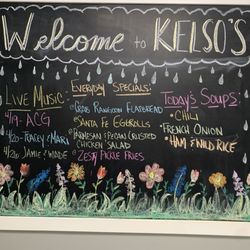 Welcome to KELSO'S
LIVE MUSIC:
4/19- ACG
4/20- TRACEY & MARI
4/26 JAMIE & WADE
EVERYDAY SPECIALS:
CRAB RANGOON FLATBREAD
SANTA FE EGGROLLS
PARMESAN & PECAN CRUSTED
CHICKEN SALAD
ZESTY PICKLE FRIES
TODAY'S SOUPS:
CHILI
FRENCH ONION
HAM & WILD RICE